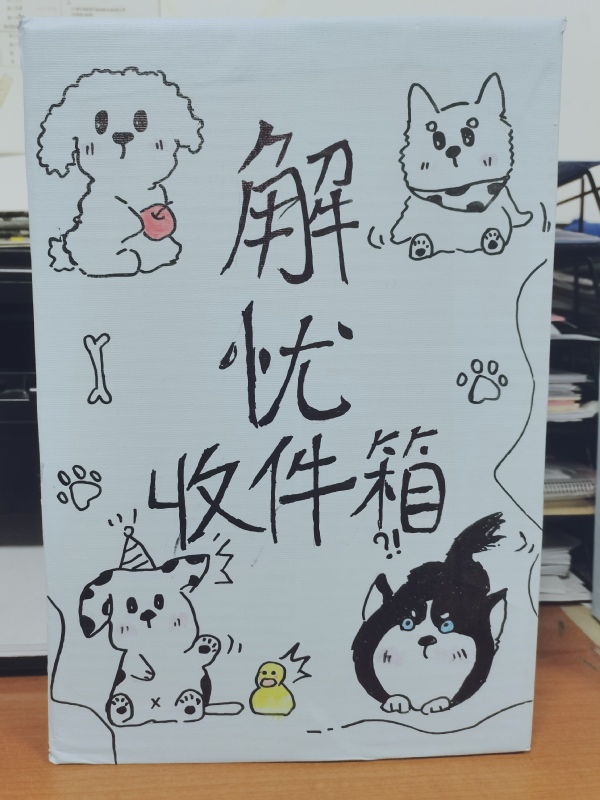 解
忧
收件箱
?!